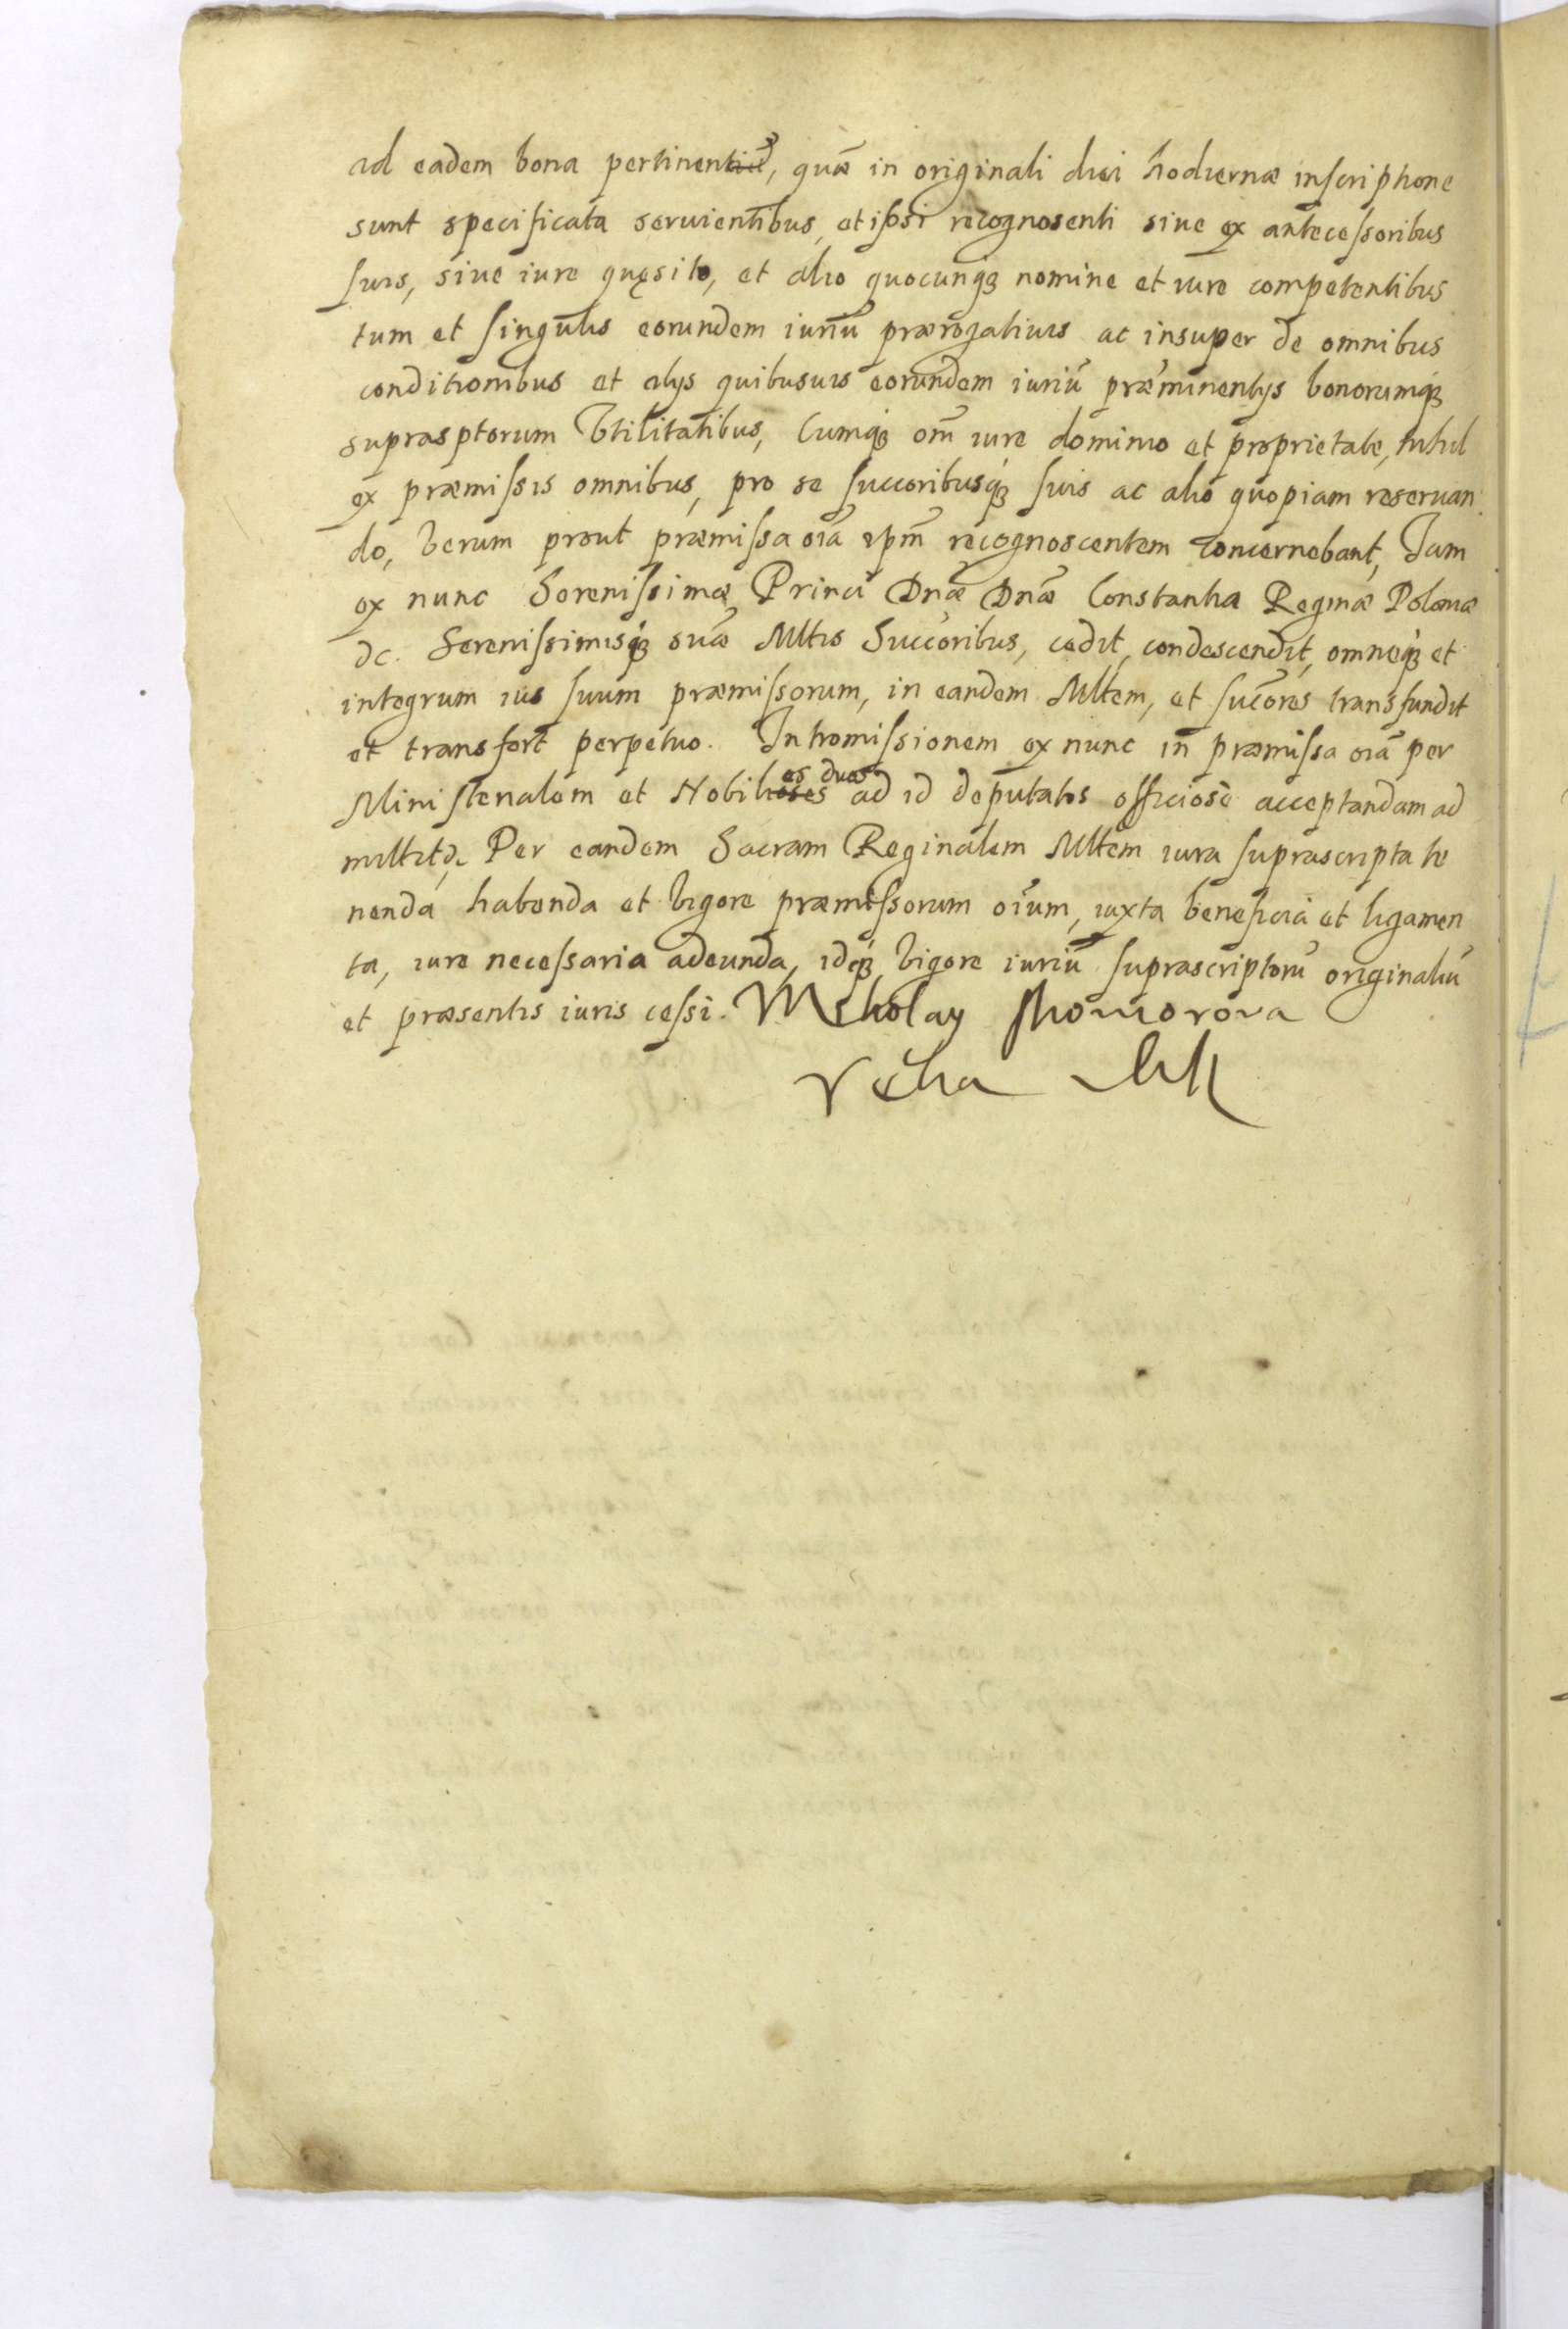 ad eadem bona pertinentia, quæ in originali diei hodiernæ inscriptione
sunt specificata seruientibus, et ipsi recognosenti siue ex antecessoribus
suis, siue iure quęsito, et alio quocunq3 nomine et iure competentibus
tum et singulis eorundem iuriũ prærogatiuis ac insuper de omnibus
conditionibus et alys quibusuis eorundem iuriũ præminentys bonorumq3
suprasptorum Vtilitatibus, Cumq3 om̃ iure dominio et proprietate, Nihil
ex præmissis omnibus, pro se succoribusq3 suis ac alio quopiam reseruan
do, Verum prout præmissa oĩa ipm̃ recognoscentem concernebant, Jam
ex nunc Serenissimæ Princi Dnæ Dnæ Constantia Reginæ Poloniæ
dc. Serenissimisq3 suæ Mttis Succoribus, cedit, condescendit, omneq3 et
integrum ius suum præmissorum, in eandem Mttem, et sucores transfundit
et transfert perpetuo. Intromissionem ex nunc in præmissa oĩa per
Ministerialem et Nobiles duos ad id deputatos officiosè acceptandam ad
mittit, Per eandem Sacram Reginalem Mttem iura suprascripta te
nenda habenda et vigore præmissorum oĩum, iuxta beneficia et ligamen
ta, iure necessaria adeunda, idq3 vigore iuriũ suprascriptorũ originaliũ
et præsentis iuris cessi. Mikolay Komorowa
ręka